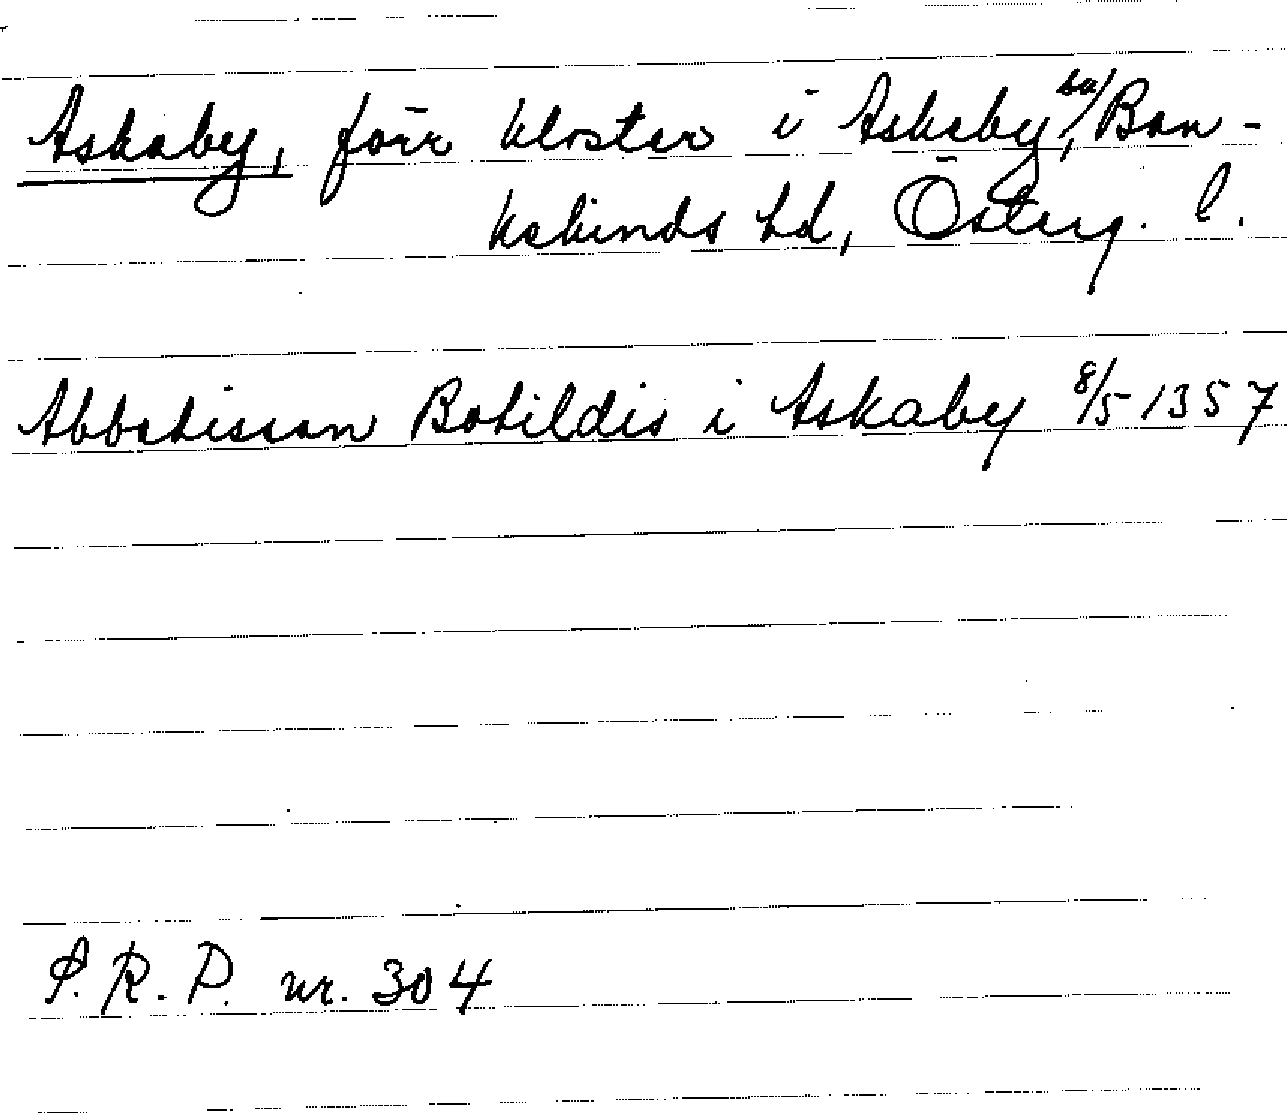 Askaby, förr kloster i Askaby sn, Ban-
kekinds hd, Österg. l.
Abbatissan Botildis i Askaby 8/5 1357
S.R.P. nr. 304